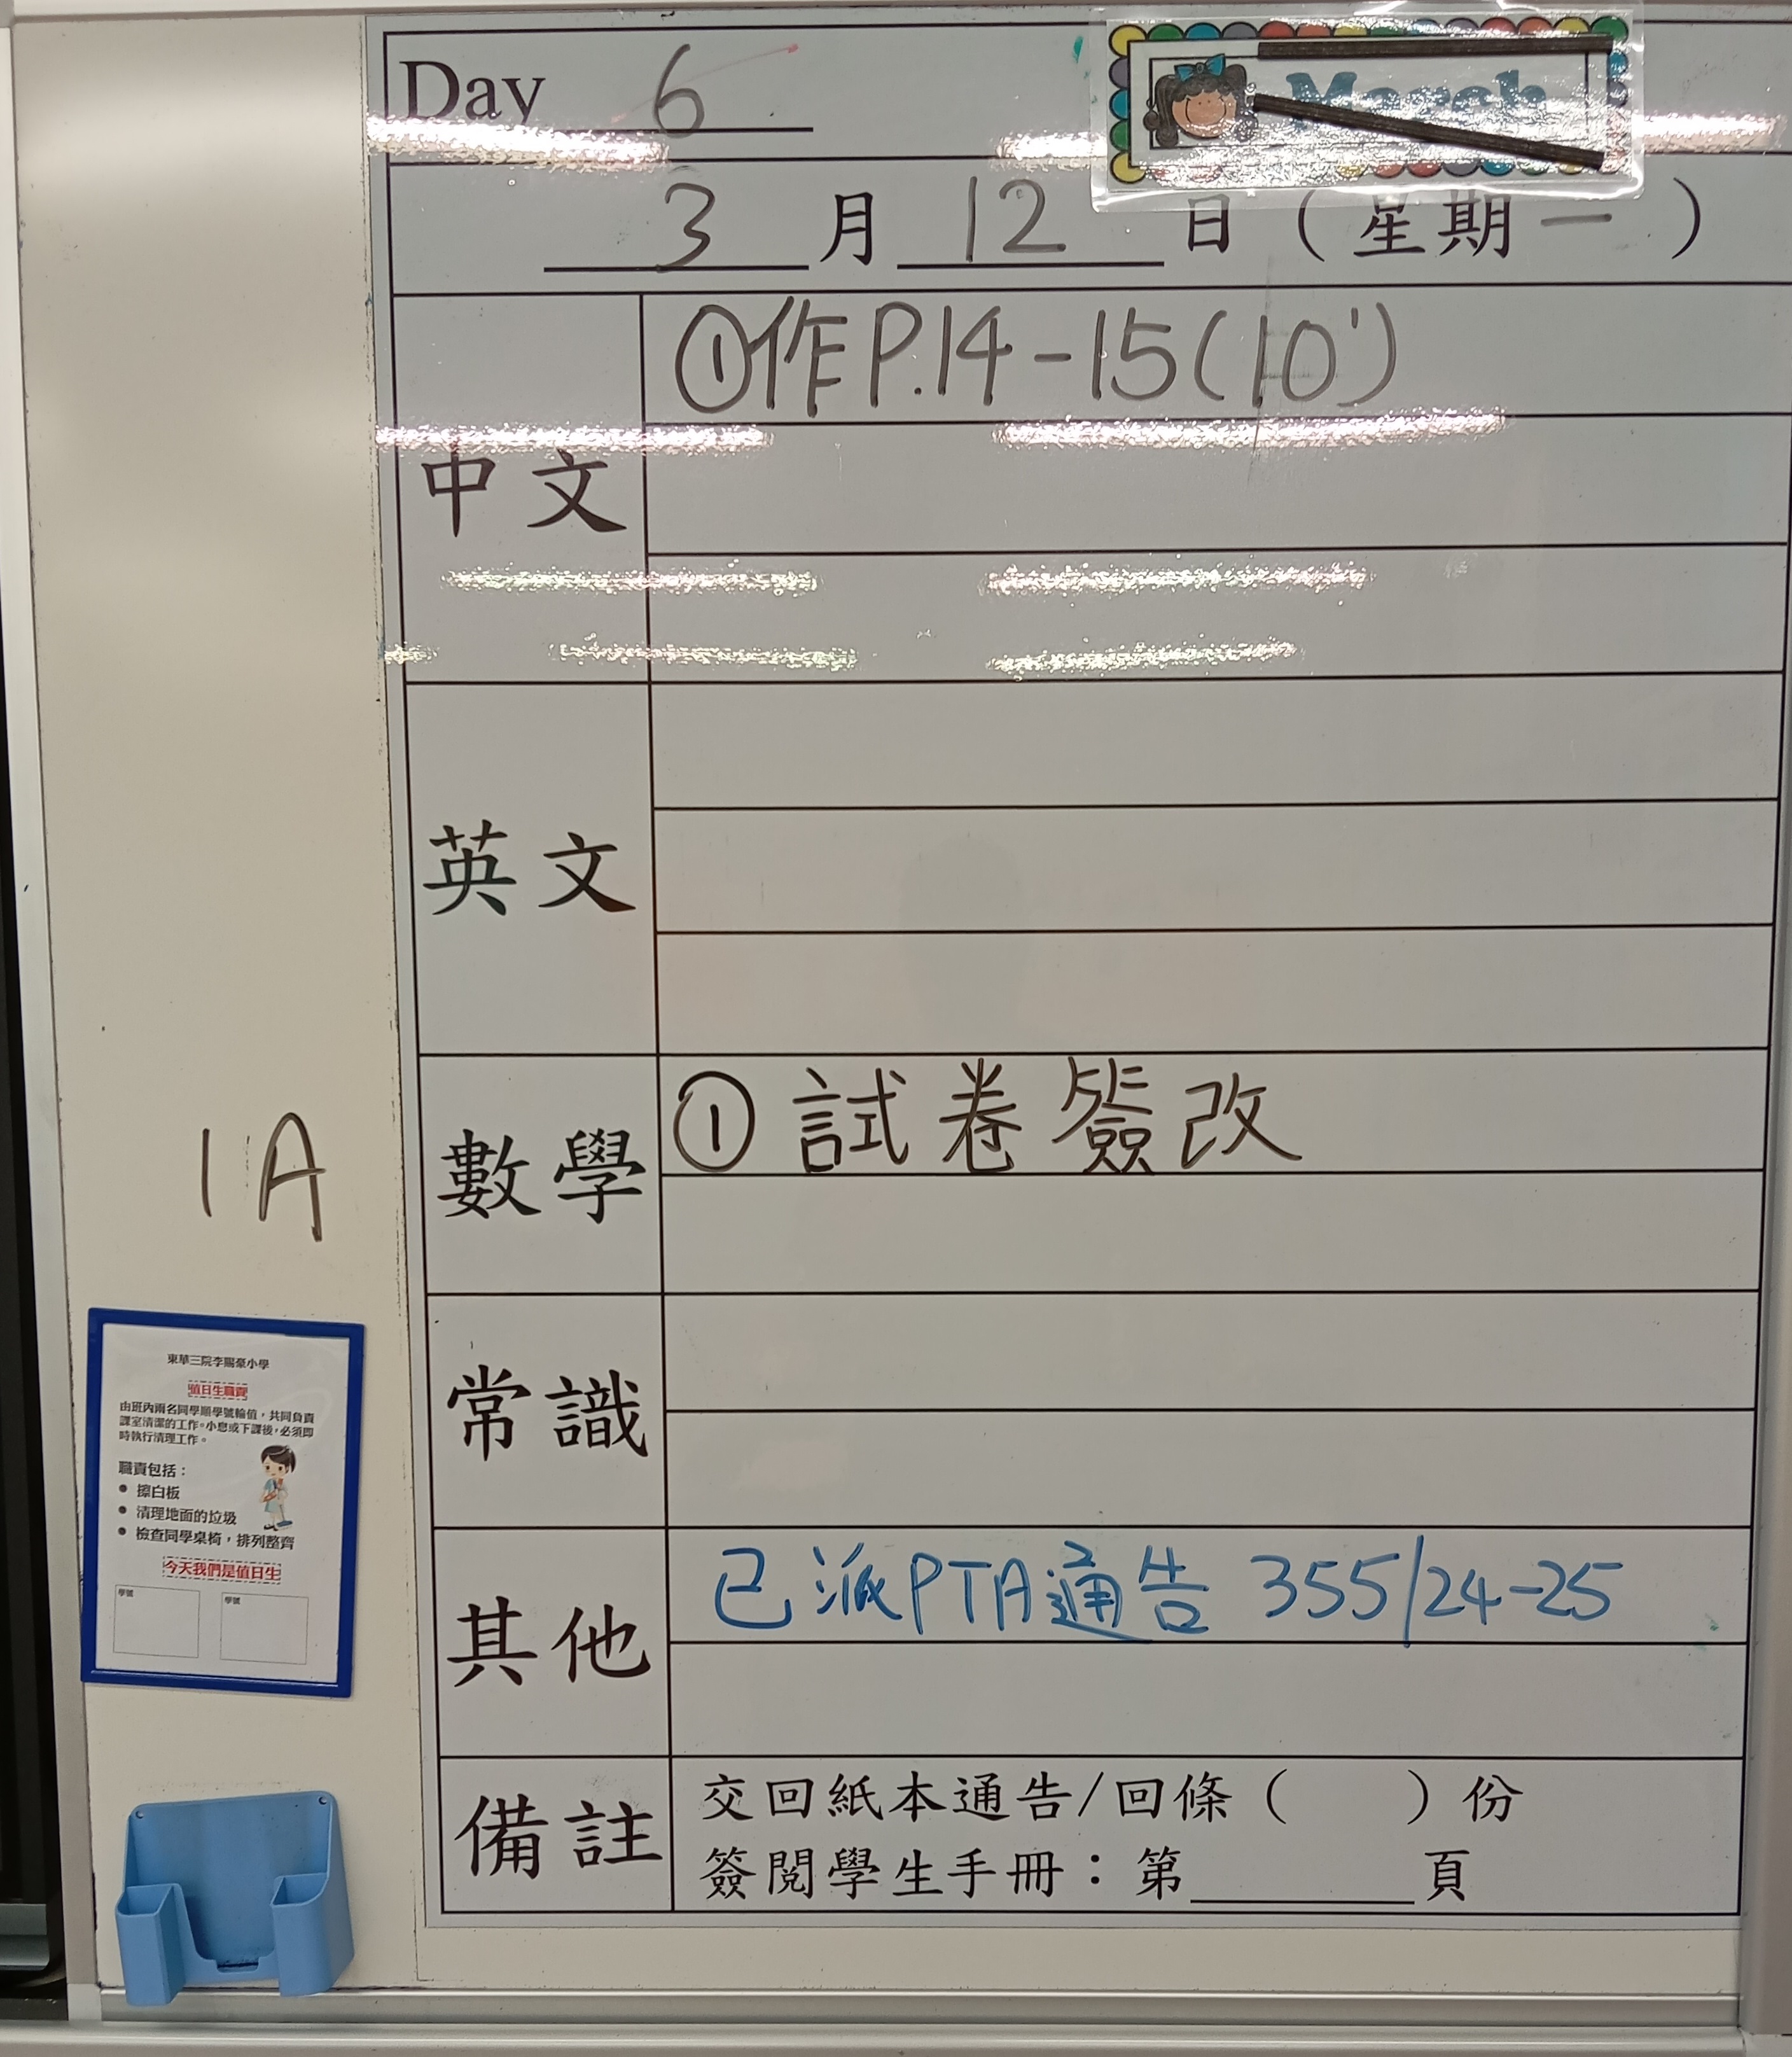 Day 6
March
3月12日(星期一)
中文
①作P.14-15(10')
英文
數學
①試卷簽改
1A
常識
其他
已派PTA通告 355/24-25
備註
交回紙本通告/回條( )份
簽閱學生手冊：第____頁
東華三院李賜豪小學
值日生職責
由班內兩名同學順學號輪值，共同負責
課室清潔的工作。小息或下課後，必須即
時執行清理工作。
職責包括：
• 擦白板
• 清理地面的垃圾
• 檢查同學桌椅，排列整齊
今天我們是值日生
學號 學號